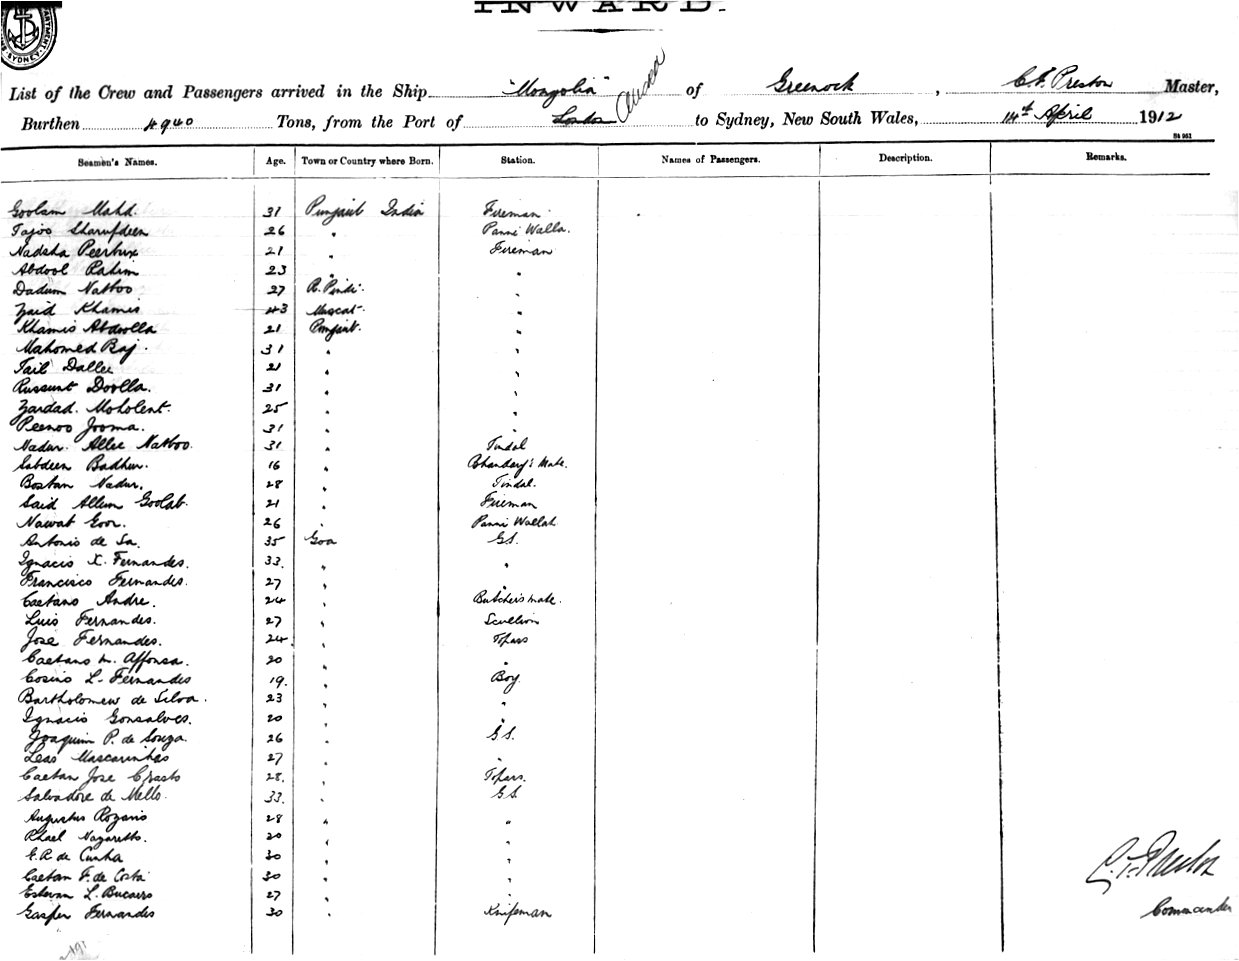 INWARD.
List of the Crew and Passengers arrived in the Ship "Mongolia" of Greenock, C. F. Preston Master,
Burthen 4940 Tons, from the Port of London to Sydney, New South Wales, 14th April 1912
Seamen's Names. Age. Town or Country where Born. Station. Names of Passengers. Description. Remarks.
Goolam Mahd. 31 Punjaub India Fireman
Tajoo Sharufdeen 26 " Panni Walla.
Nadsha Peerbux 21 " Fireman
Abdool Rahim 23 " "
Dadum Nathoo 27 R. Pindi. "
Zaid Khamis 43 Muscat. "
Khamis Abdoolla 21 Punjaub. "
Mahomed Baj. 31 " "
Tail Dallee 21 " "
Russunt Doolla. 31 " "
Zardad. Moholent. 25 " "
Peenoo Jooma. 31 " "
Nadur. Allee Nathoo. 31 " Tindal
Sabdeen Badhur. 16 " Bhandary's Mate.
Bostan Nadur. 28 " Tindal.
Said Allum Goolab. 21 " Fireman
Nawab Goor. 26 " Panni Wallah
Antonio de Sa. 35 Goa G.S.
Ignacio X. Fernandes. 33. " "
Francisco Fernandes. 27 " "
Caetano Andre. 24 " Butcher's mate.
Luis Fernandes. 27 " Scullion
Jose Fernandes. 24. " Topass
Caetano M. Affonsa. 20 " "
Cosino L. Fernandes 19. " Boy.
Bartholomew de Silva. 23 " "
Ignacio Gonsalves. 20 " "
Joaquim P. de Souza. 26 " G.S.
Leao Mascarinhas 27 " "
Caetan Jose Crasto 28. " Topass.
Salvadore de Mello. 33. " G.S.
Augustus Rozario 28 " "
Rhael Nazareth. 20 " "
E. R. de Cunha 30 " "
Caetan F. de Costa 30 " "
Estevan L. Bucaro 27 " "
Gasper Fernandes 30 " Knifeman
C. F. Preston
Commander